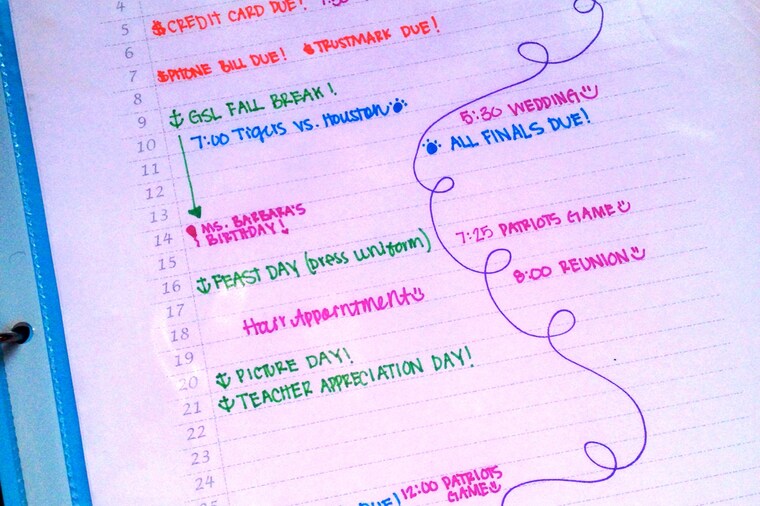 4
5 $CREDIT CARD DUE!
6
7 $PHONE BILL DUE! $TRUSTMARK DUE!
8
9 GSL FALL BREAK!
10 7:00 Tigers vs. Houston
5:30 WEDDING
ALL FINALS DUE!
11
12
13
14 MS. BARBARA'S
BIRTHDAY!
7:25 PATRIOTS GAME
15
16 FEAST DAY (press uniform)
8:00 REUNION
17
18 Hair Appointment
19
20 PICTURE DAY!
21 TEACHER APPRECIATION DAY!
22
23
24
25
DUE!
12:00 PATRIOTS
GAME